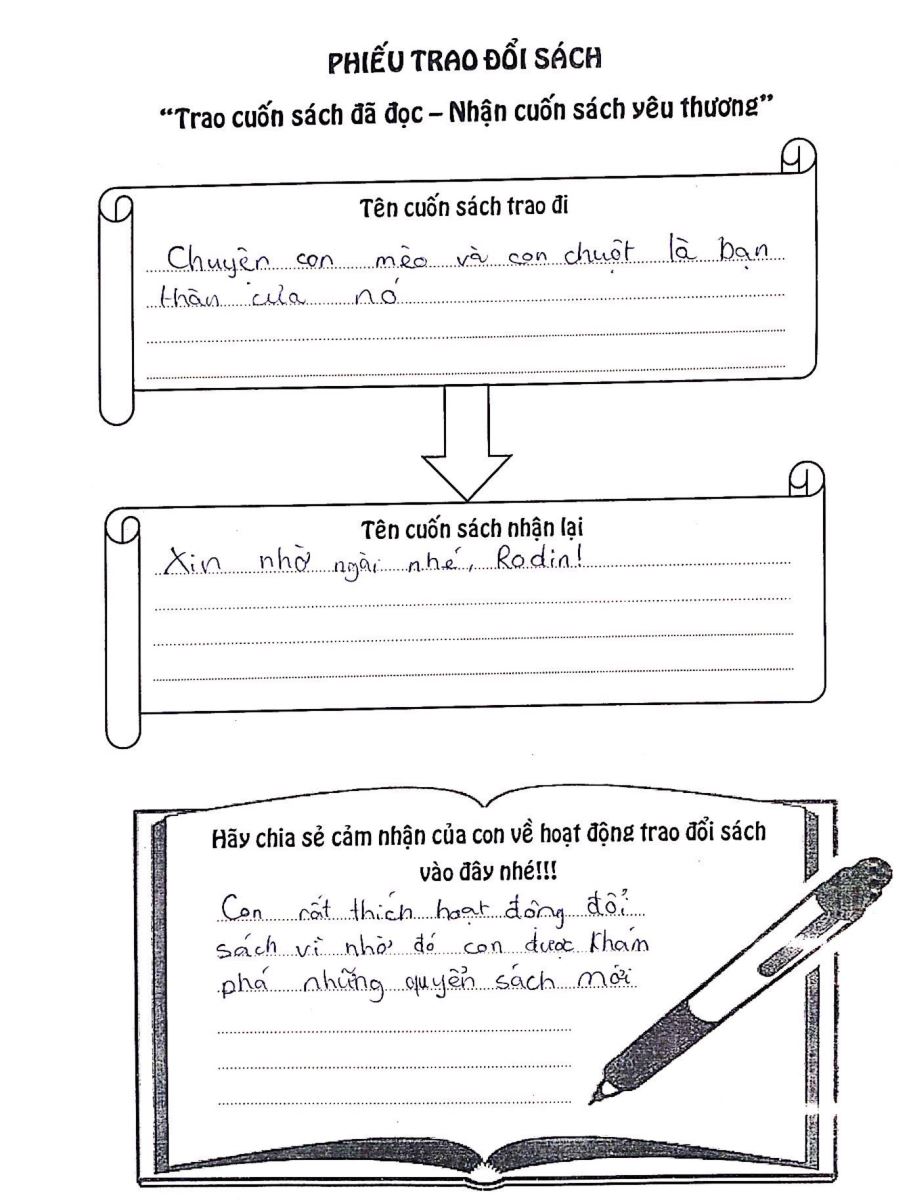 PHIẾU TRAO ĐỔI SÁCH
“Trao cuốn sách đã đọc – Nhận cuốn sách yêu thương”
Tên cuốn sách trao đi
Chuyện con mèo và con chuột là bạn
thân của nó
Tên cuốn sách nhận lại
Xin nhờ ngài nhé, Rodin!
Hãy chia sẻ cảm nhận của con về hoạt động trao đổi sách
vào đây nhé!!!
Con rất thích hoạt động đổi
sách vì nhờ đó con được khám
phá những quyển sách mới